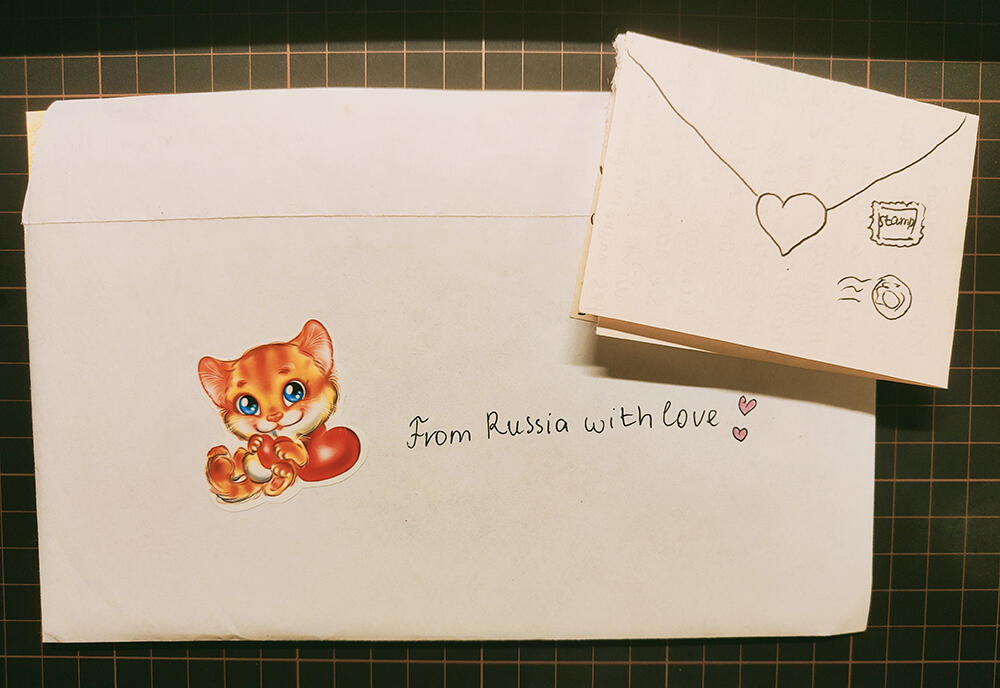 stamp
From Russia with love